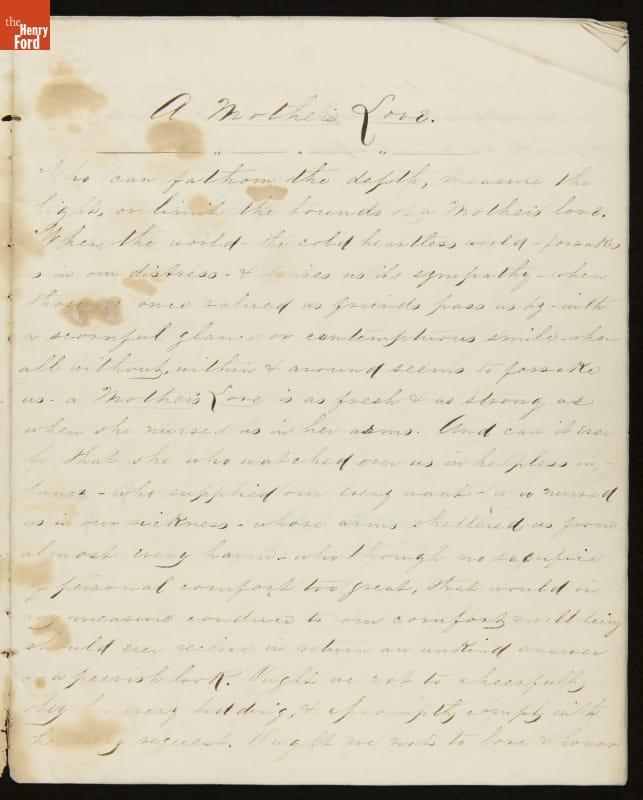 the
Henry
Ford
A Mother's Love.
Who can fathom the depth, measure the
hight, or limit the bounds of a Mother's love.
When the world - the cold heartless world - forsakes
us in our distress - & denies us its sympathy - when
those we once valued as friends pass us by - with
a scornful glance or contemptuous smile - when
all without, within & around seems to forsake
us - a Mother's Love is as fresh & as strong as
when she nursed us in her arms. And can it ever
be that she who watched over us in helpless in-
fancy - who supplied our every want - who nursed
us in our sickness - whose arms sheltered us from
almost every harm - who though no sacrifice
of personal comfort too great, that would in
any measure conduce to our comfort & well being
should ever receive in return an unkind answer
or a peevish look. Ought we not to cheerfully
obey her every bidding, & promptly comply with
her every request. Ought we not to love & honor